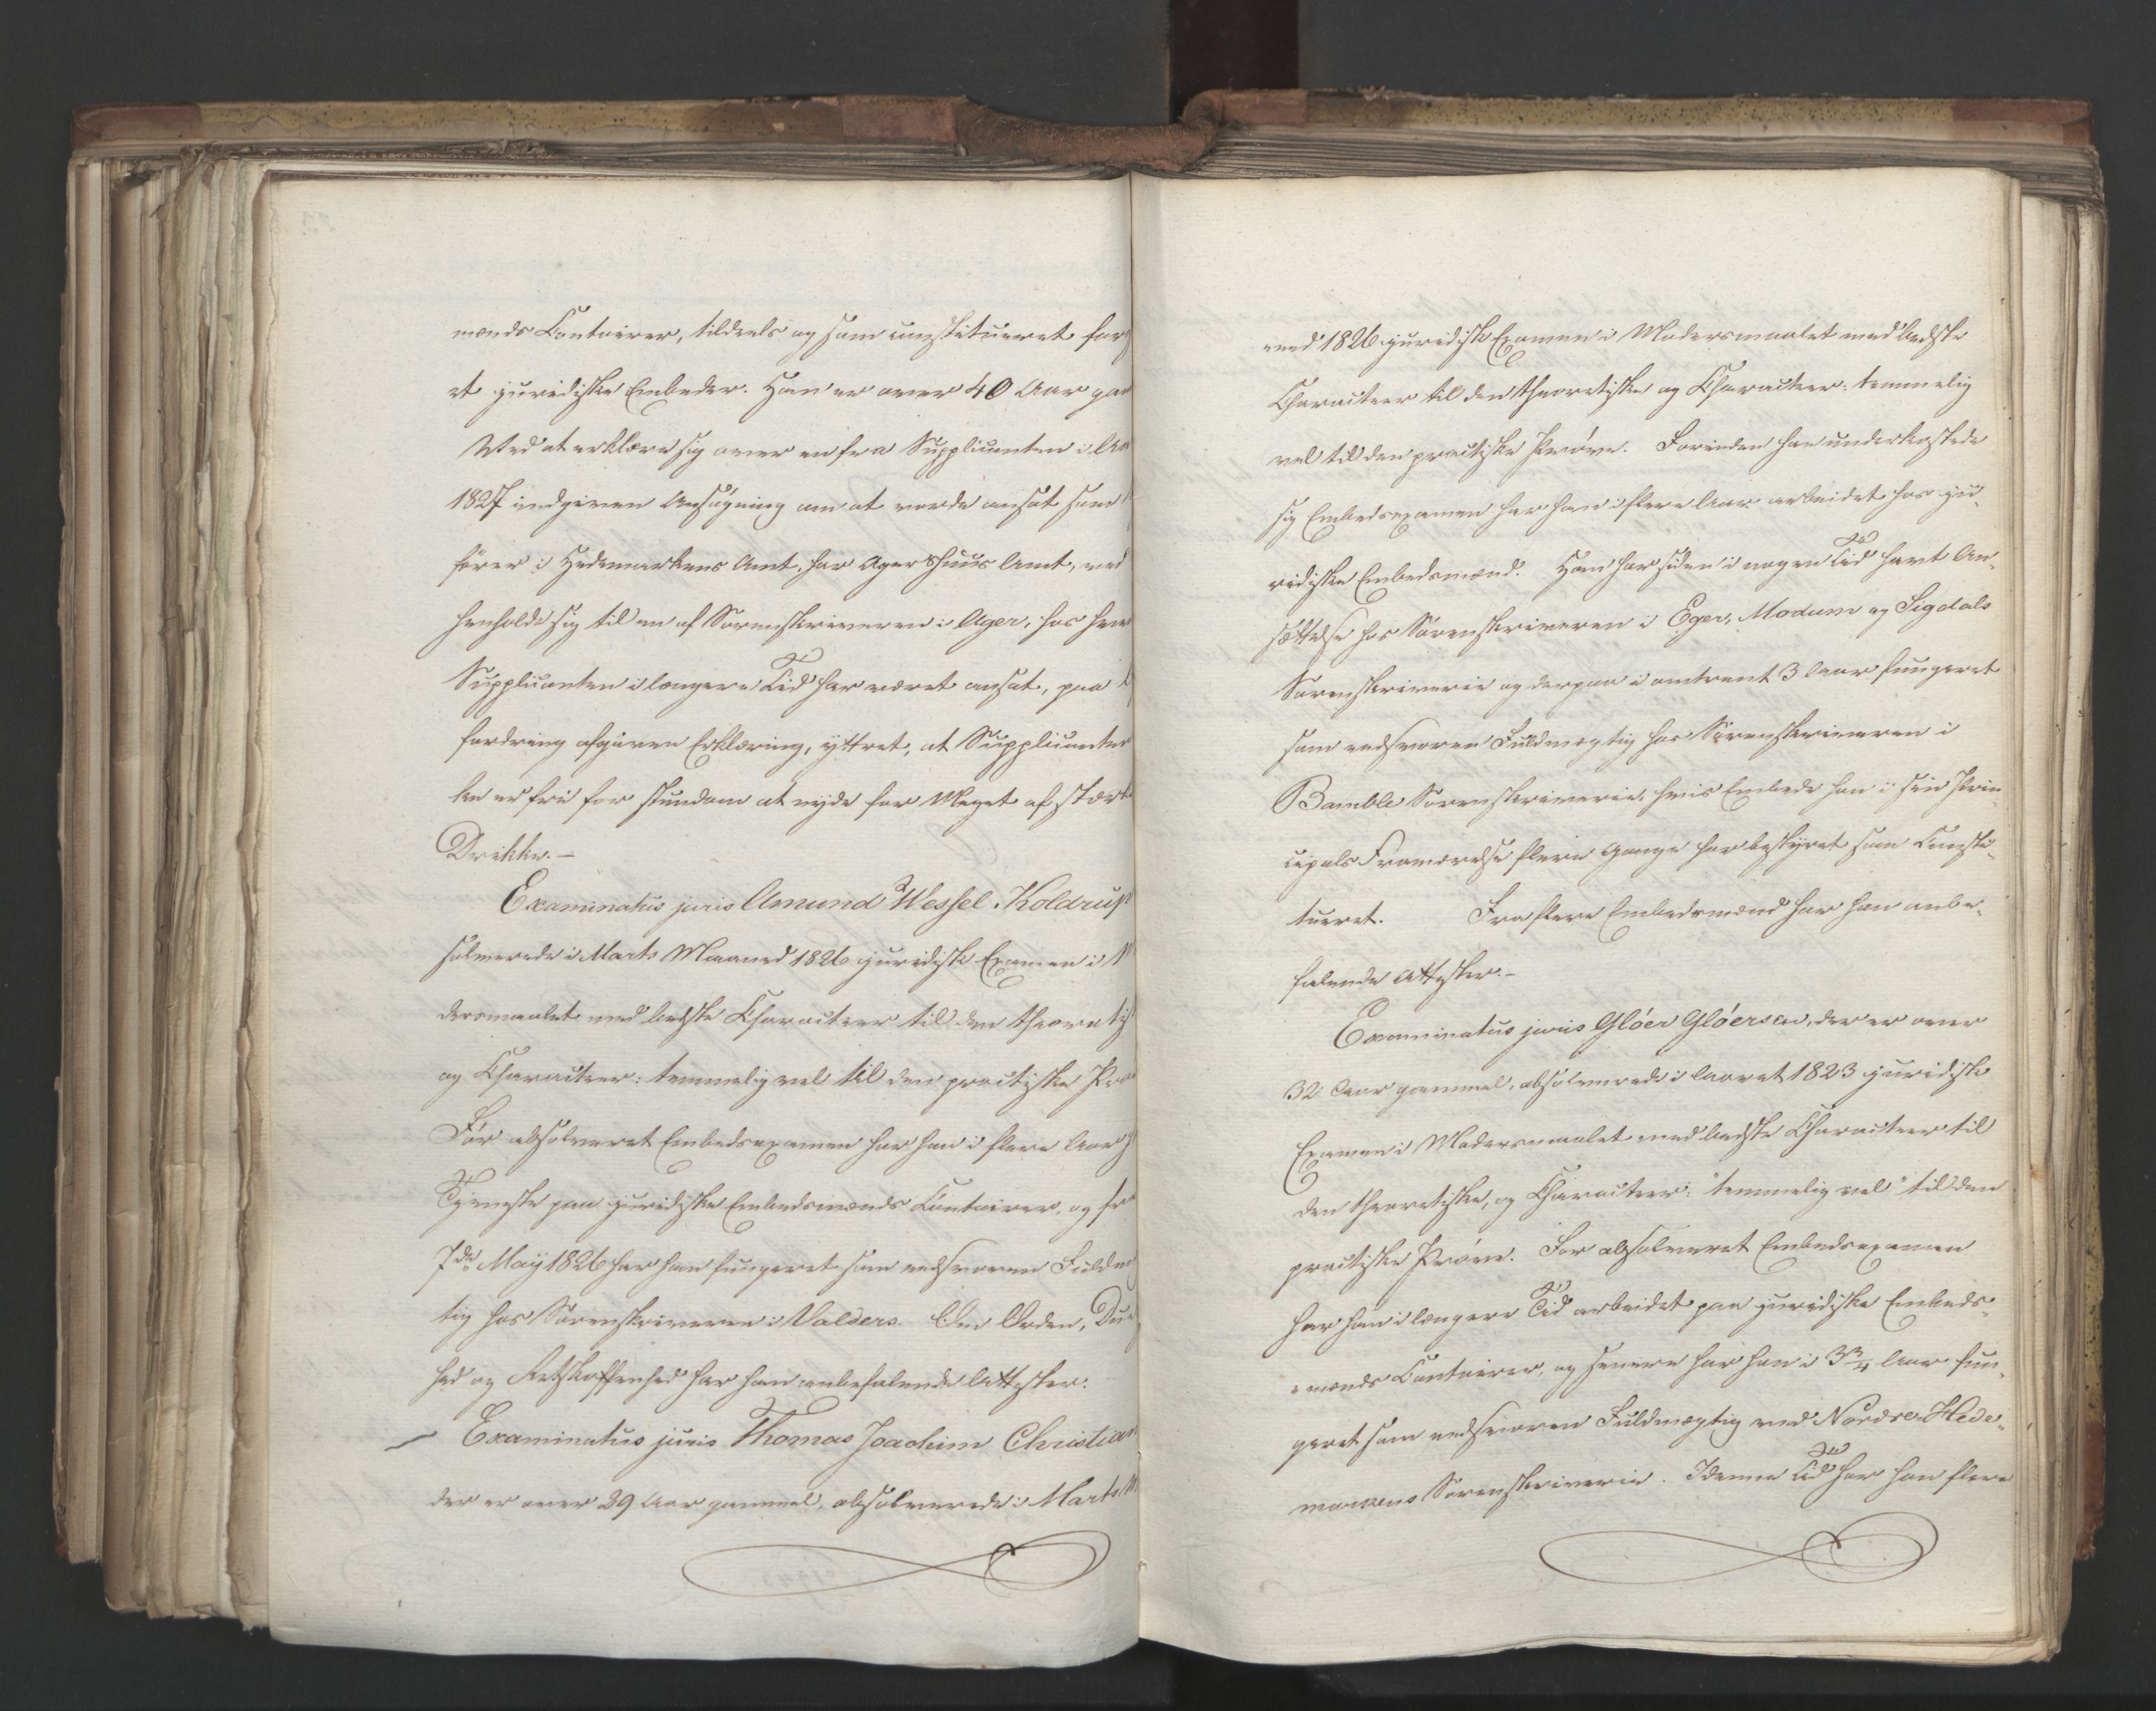 mænds Contoirer, tildeels og som constitueret for
et juridiske Embeder. Han er over 40 Aar gam
Ved at erklære sig over en fra Supplicanten i Aa
1827 indgiven Ansøgning om at vorde ansat som
fører i Hedemarkens Amt, har Agershuus Amt, ved
henholde sig til en af Sorenskriveren i Ager, hos hvem
Supplicanten i længere Tid har været ansat, paa
fordring afgiven Erklæring, yttret, at Supplicanten
ke er fri for stundom at nyde for Meget af stærk
Drikke. —
Examinatus juris Amund Wessel Koldrup
solverede i Marts Maaned 1826 juridisk Examen i M
dersmaalet med bedste Characteer til den theoretis
og Characteer: temmelig vel til den practiske Prø
Før absolveret Embedsexamen har han i flere Aar
Tjeneste paa juridiske Embedsmænds Contoirer, og fra
7de May 1826 har han fungeret som edsvoren Fuldm
tig hos Sorenskriveren i Valders. Om Orden, Du
hed og Retskaffenhed har han anbefalende Attester.
Examinatus juris Thomas Joachim Christian
der er over 29 Aar gammel, absolverede i Marts M
ned 1826 juridisk Examen i Modersmaalet med bedste
Characteer til den theoretiske og Characteer: temmelig
vel til den practiske Prøve. Forinden han underkastede
sig Embedsexamen har han i flere Aar arbeidet hos ju-
ridiske Embedsmænd. Han har siden i nogen Tid havt An-
sættelse hos Sorenskriveren i Eger, Modum og Sigdals
Sorenskriverie og derpaa i omtrent 3 Aar fungeret
som edsvoren Fuldmægtig hos Sorenskriveren i
Bamble Sorenskriverie, hvis Embede han i sin Prin-
cipals Fraværelse flere Gange har bestyret som Consti-
tueret. Fra flere Embedsmænd har han anbe-
falende Attester. –
Examinatus juris Glöer Glöersen, der er over
32 Aar gammel, absolverede i Aaret 1823 juridisk
Examen i Modersmaalet med bedste Characteer til
den theoretiske, og Characteer: "temmelig vel" til den
practiske Prøve. Før absolveret Embedsexamen
har han i længere Tid arbeidet paa juridiske Embeds-
mænds Contoirer, og senere har han i 3 3/4 Aar fun-
geret som edsvoren Fuldmægtig ved Nordre Hede-
markens Sorenskriverie. I denne Tid har han flere